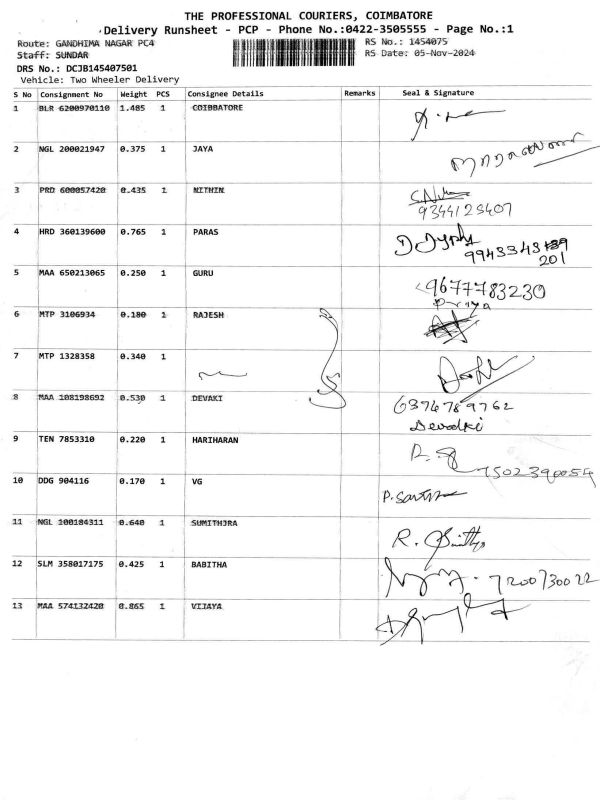 THE PROFESSIONAL COURIERS, COIMBATORE
Delivery Runsheet - PCP - Phone No.:0422-3505555 - Page No.:1
Route: GANDHIMA NAGAR PC4 RS No.: 1454075
Staff: SUNDAR RS Date: 05-Nov-2024
DRS No.: DCJB145407501
Vehicle: Two Wheeler Delivery
S No Consignment No Weight PCS Consignee Details Remarks Seal & Signature
1 BLR 6200970110 1.485 1 COIBBATORE
2 NGL 200021947 0.375 1 JAYA
3 PRD 600057420 0.435 1 NITHIN
9344123407
4 HRD 360139600 0.765 1 PARAS
201
5 MAA 650213065 0.250 1 GURU 9677783230
Priya
6 MTP 3106934 0.180 1 RAJESH
7 MTP 1328358 0.340 1
8 MAA 108198692 0.530 1 DEVAKI 6374789762
Devadki
9 TEN 7853310 0.220 1 HARIHARAN
7502390054
10 DDG 904116 0.170 1 VG
11 NGL 100184311 0.640 1 SUMITHJRA
12 SLM 358017175 0.425 1 BABITHA 7200730022
13 MAA 574132420 0.865 1 VIJAYA